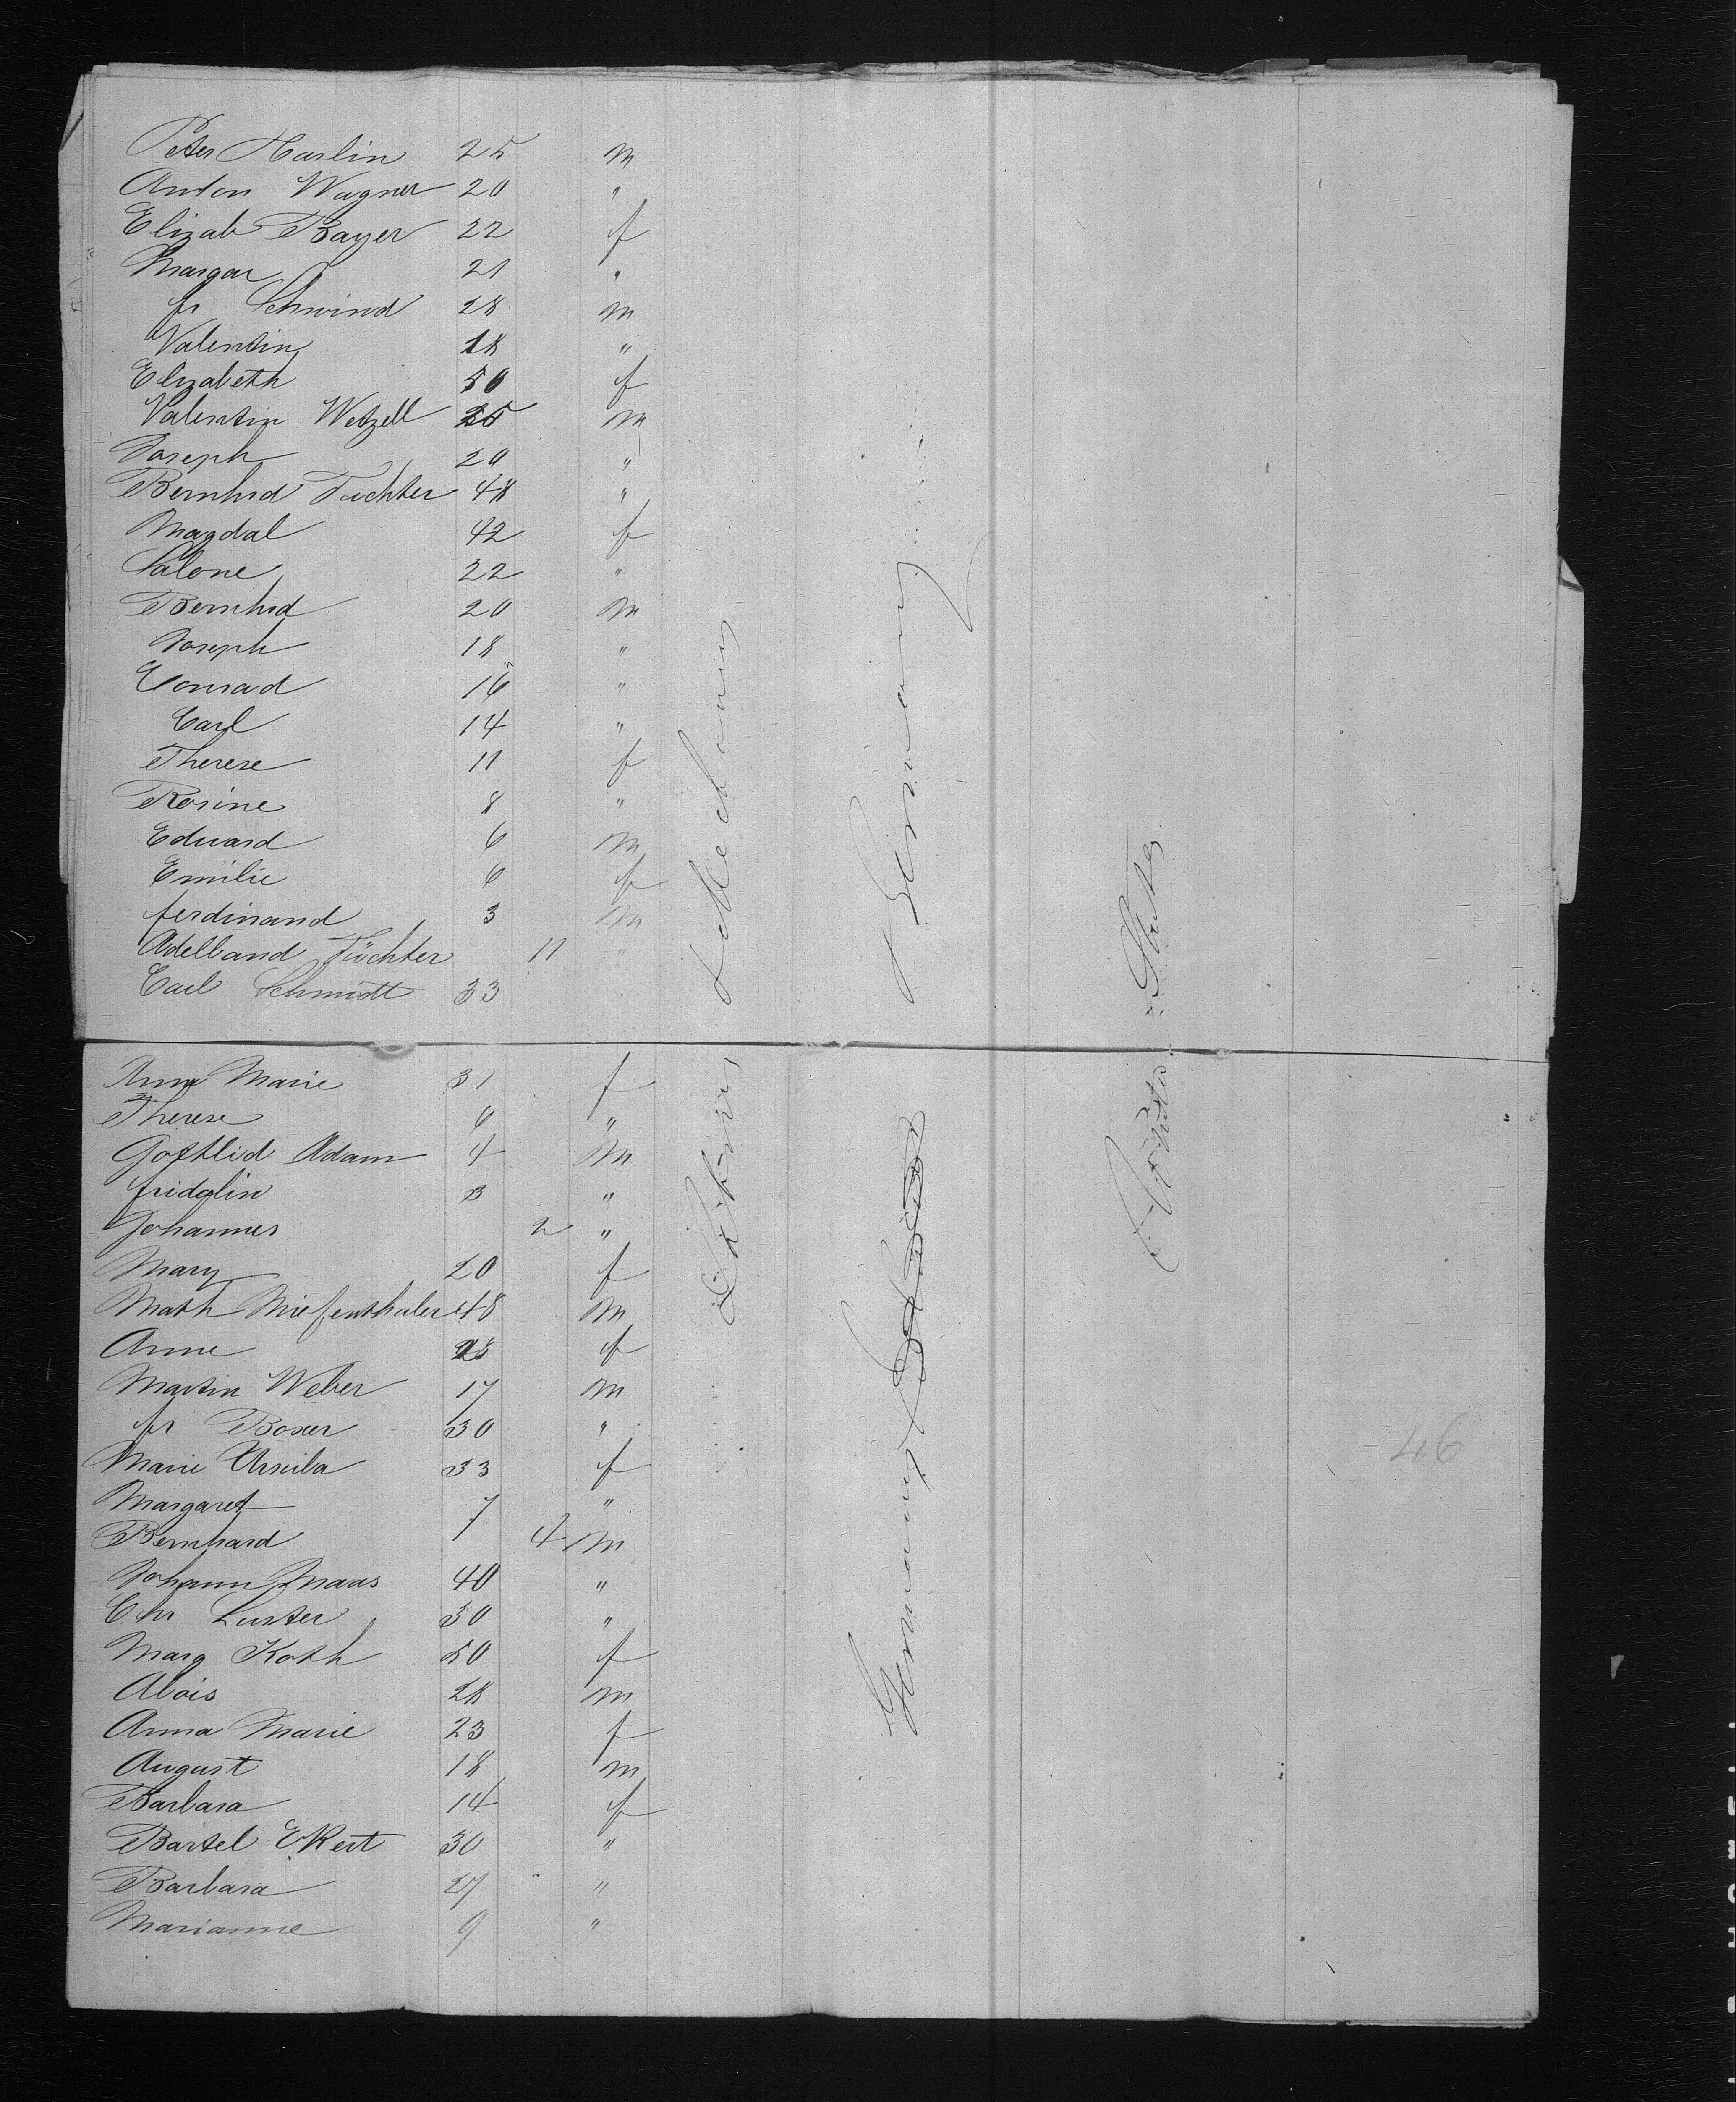 Peter Harlin 25 m
Anton Wagner 20 "
Elizab Bayer 22 f
Margar 21 "
fr Schwind 28 m
Valentin 18 "
Elizabeth 50 f
Valentin Wetzell 25 m
Joseph 20 "
Bernhd Tüchter 48 "
Magdal 42 f
Salone 22 "
Bernhd 20 m
Joseph 18 "
Conrad 16 "
Carl 14 "
Therese 11 f
Rosine 8 "
Eduard 6 m
Emilie 6 f
ferdinand 3 m
Adelband Tüchter 11 "
Carl Schmidt 33
Anna Marie 31 f
Therese 6 "
Gottlid Adam 4 m
fridolin 3 "
Johannes 2 "
Mary 20 f
Math Miesenthaler 48 m
Anne f
Martin Weber 17 m
fr Boxer 30 "
Marie Ursula 33 f
Margaret 7 "
Bernhard 4 m
Johann Maas 40 "
Chr Luster 30 "
Marg Koth 50 f
Alois 28 m
Anna Marie 23 f
August 18 m
Barbara 14 f
Bartel Ekert 30 "
Barbara 27 "
Marianne 9 "
& Mechanics
Germany
Germany
United States
46